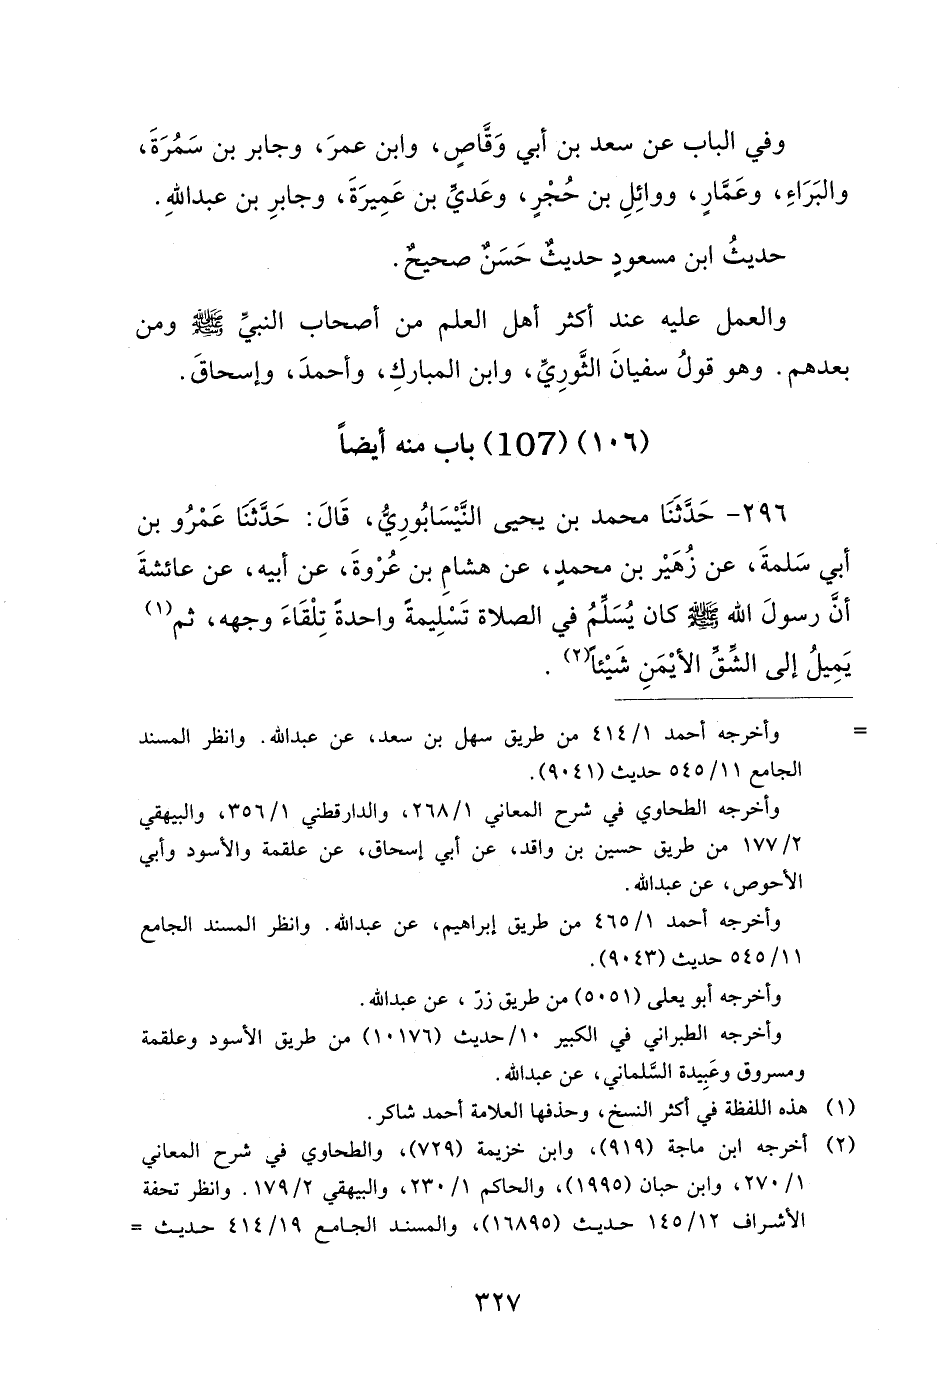 وفي الباب عن سعد بن أبي وَقَّاصٍ، وابن عمرَ، وجابر بن سَمُرَةَ،
والبَرَاءِ، وعَمَّارٍ، ووائِلِ بن حُجْرٍ، وعَديِّ بن عَمِيرَةَ، وجابرِ بن عبداللهِ.
حديثُ ابن مسعودٍ حديثٌ حَسَنٌ صحيحٌ.
والعمل عليه عند أكثر أهل العلم من أصحاب النبيِّ ﷺ ومن
بعدهم. وهو قولُ سفيانَ الثَّوريِّ، وابن المباركِ، وأحمدَ، وإسحاقَ.
(١٠٦) (107) باب منه أيضاً
٢٩٦- حَدَّثَنَا محمد بن يحيى النَّيْسَابُوريُّ، قَالَ: حَدَّثَنَا عَمْرُو بن
أبي سَلمةَ، عن زُهَيْر بن محمدٍ، عن هشامِ بن عُرْوةَ، عن أبيه، عن عائشةَ
أنَّ رسولَ الله ﷺ كان يُسَلِّمُ في الصلاة تَسْلِيمةً واحدةً تِلْقَاءَ وجهه، ثم(١)
يَمِيلُ إلى الشِّقِّ الأيْمَنِ شَيْئاً(٢).
= وأخرجه أحمد ٤١٤/١ من طريق سهل بن سعد، عن عبدالله. وانظر المسند
الجامع ٥٤٥/١١ حديث (٩٠٤١).
وأخرجه الطحاوي في شرح المعاني ٢٦٨/١، والدارقطني ٣٥٦/١، والبيهقي
١٧٧/٢ من طريق حسين بن واقد، عن أبي إسحاق، عن علقمة والأسود وأبي
الأحوص، عن عبدالله.
وأخرجه أحمد ٤٦٥/١ من طريق إبراهيم، عن عبدالله. وانظر المسند الجامع
٥٤٥/١١ حديث (٩٠٤٣).
وأخرجه أبو يعلى (٥٠٥١) من طريق زرّ، عن عبدالله.
وأخرجه الطبراني في الكبير ١٠/حديث (١٠١٧٦) من طريق الأسود وعلقمة
ومسروق وعَبِيدة السَّلماني، عن عبدالله.
(١) هذه اللفظة في أكثر النسخ، وحذفها العلامة أحمد شاكر.
(٢) أخرجه ابن ماجة (٩١٩)، وابن خزيمة (٧٢٩)، والطحاوي في شرح المعاني
٢٧٠/١، وابن حبان (١٩٩٥)، والحاكم ٢٣٠/١، والبيهقي ١٧٩/٢. وانظر تحفة
الأشراف ١٤٥/١٢ حديث (١٦٨٩٥)، والمسند الجامع ٤١٤/١٩ حديث =
٣٢٧